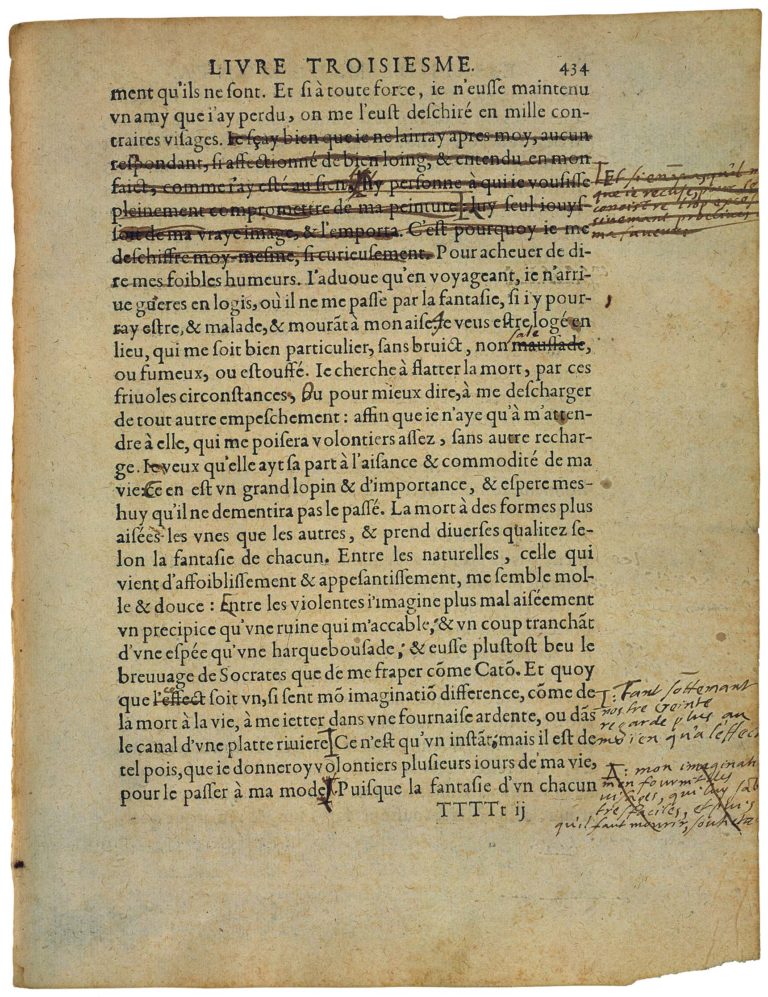 LIVRE TROISIESME. 434
ment qu'ils ne ſont. Et ſi à toute force, ie n'euſſe maintenu
vn amy que i'ay perdu, on me l'euſt deſchiré en mille con-
traires viſages. Ie ſçay bien que ie ne lairray apres moy, aucun
reſpondant, ſi affectionné de bien loing, & entendu en mon
faict, comme i'ay eſté au ſien. Ny perſonne à qui ie vouſiſſe
pleinement compromettre de ma peinture: luy ſeul iouyſ-
ſoit de ma vraye image, & l'emporta. C'eſt pourquoy ie me
deſchiffre moy-meſme, ſi curieuſement. Pour acheuer de di-
re mes foibles humeurs. I'aduoue qu'en voyageant, ie n'arri-
ue gueres en logis, où il ne me paſſe par la fantaſie, ſi i'y pour-
ray eſtre, & malade, & mourãt à mon aiſe. Ie veus eſtre logé en
ſale
lieu, qui me ſoit bien particulier, ſans bruict, non mauſſade,
ou fumeux, ou eſtouffé. Ie cherche à flatter la mort, par ces
friuoles circonſtances, Ou pour mieux dire, à me deſcharger
de tout autre empeſchement: affin que ie n'aye qu'à m'atten-
dre à elle, qui me poiſera volontiers aſſez, ſans autre rechar-
ge. Ie veux qu'elle ayt ſa part à l'aiſance & commodité de ma
vie: Ce en eſt vn grand lopin & d'importance, & eſpere meſ-
huy qu'il ne dementira pas le paſſé. La mort à des formes plus
aiſées les vnes que les autres, & prend diuerſes qualitez ſe-
lon la fantaſie de chacun. Entre les naturelles, celle qui
vient d'affoibliſſement & appeſantiſſement, me ſemble mol-
le & douce: Entre les violentes i'imagine plus mal aiſéement
vn precipice qu'vne ruine qui m'accable, & vn coup tranchãt
d'vne eſpée qu'vne harquebouſade, & euſſe pluſtoſt beu le
breuuage de Socrates que de me fraper cõme Catõ. Et quoy
que l'effect ſoit vn, ſi ſent mõ imaginatiõ difference, cõme de
la mort à la vie, à me ietter dans vne fournaiſe ardente, ou dãs
le canal d'vne platte riuiere. Ce n'eſt qu'vn inſtãt; mais il eſt de
tel pois, que ie donneroy volontiers pluſieurs iours de ma vie,
pour le paſſer à ma mode. Puiſque la fantaſie d'vn chacun
TTTTt ij
Et ſi en qu'il
ie recuſe
conoiſtre
me
Tant ſottemant
noſtre creinte
regarde plus au
moien qu'a l'effec
mon imaginati
m'en
faciles, et puis
qu'il faut mourir,